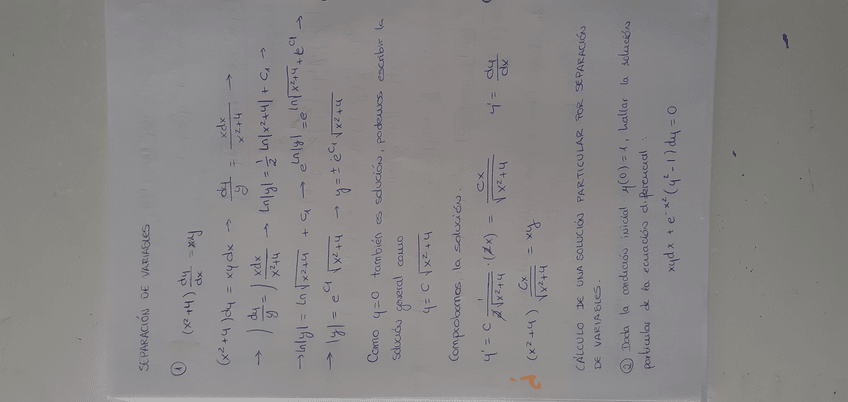 SEPARACIÓN DE VARIABLES
① (x²+4) dy/dx = xy
(x²+4)dy = xydx → dy/y = xdx/x²+4 →
→ ∫ dy/y = ∫ xdx/x²+4 → ln|y| = 1/2 ln|x²+4| + C₁ →
→ ln|y| = ln√x²+4 + C₁ → e^ln|y| = e^ln√x²+4 + e^C₁ →
→ |y| = e^C₁ √x²+4 → y = ± e^C₁ √x²+4
Como y=0 también es solución, podemos escribir la
solución general como
y = C √x²+4
Comprobamos la solución.
y' = C 1/2√x²+4 · (2x) = Cx/√x²+4 y' = dy/dx
(x²+4) Cx/√x²+4 = xy
CÁLCULO DE UNA SOLUCIÓN PARTICULAR POR SEPARACIÓN
DE VARIABLES.
② Dada la condición inicial y(0)=1, hallar la solución
particular de la ecuación diferencial:
xydx + e^-x² (y²-1)dy = 0